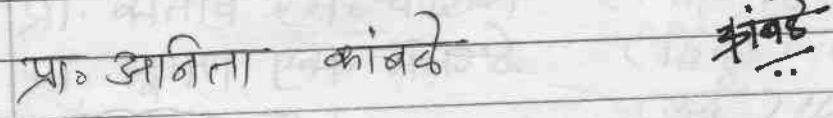 प्रा. अनिता कांबळे कांबळे